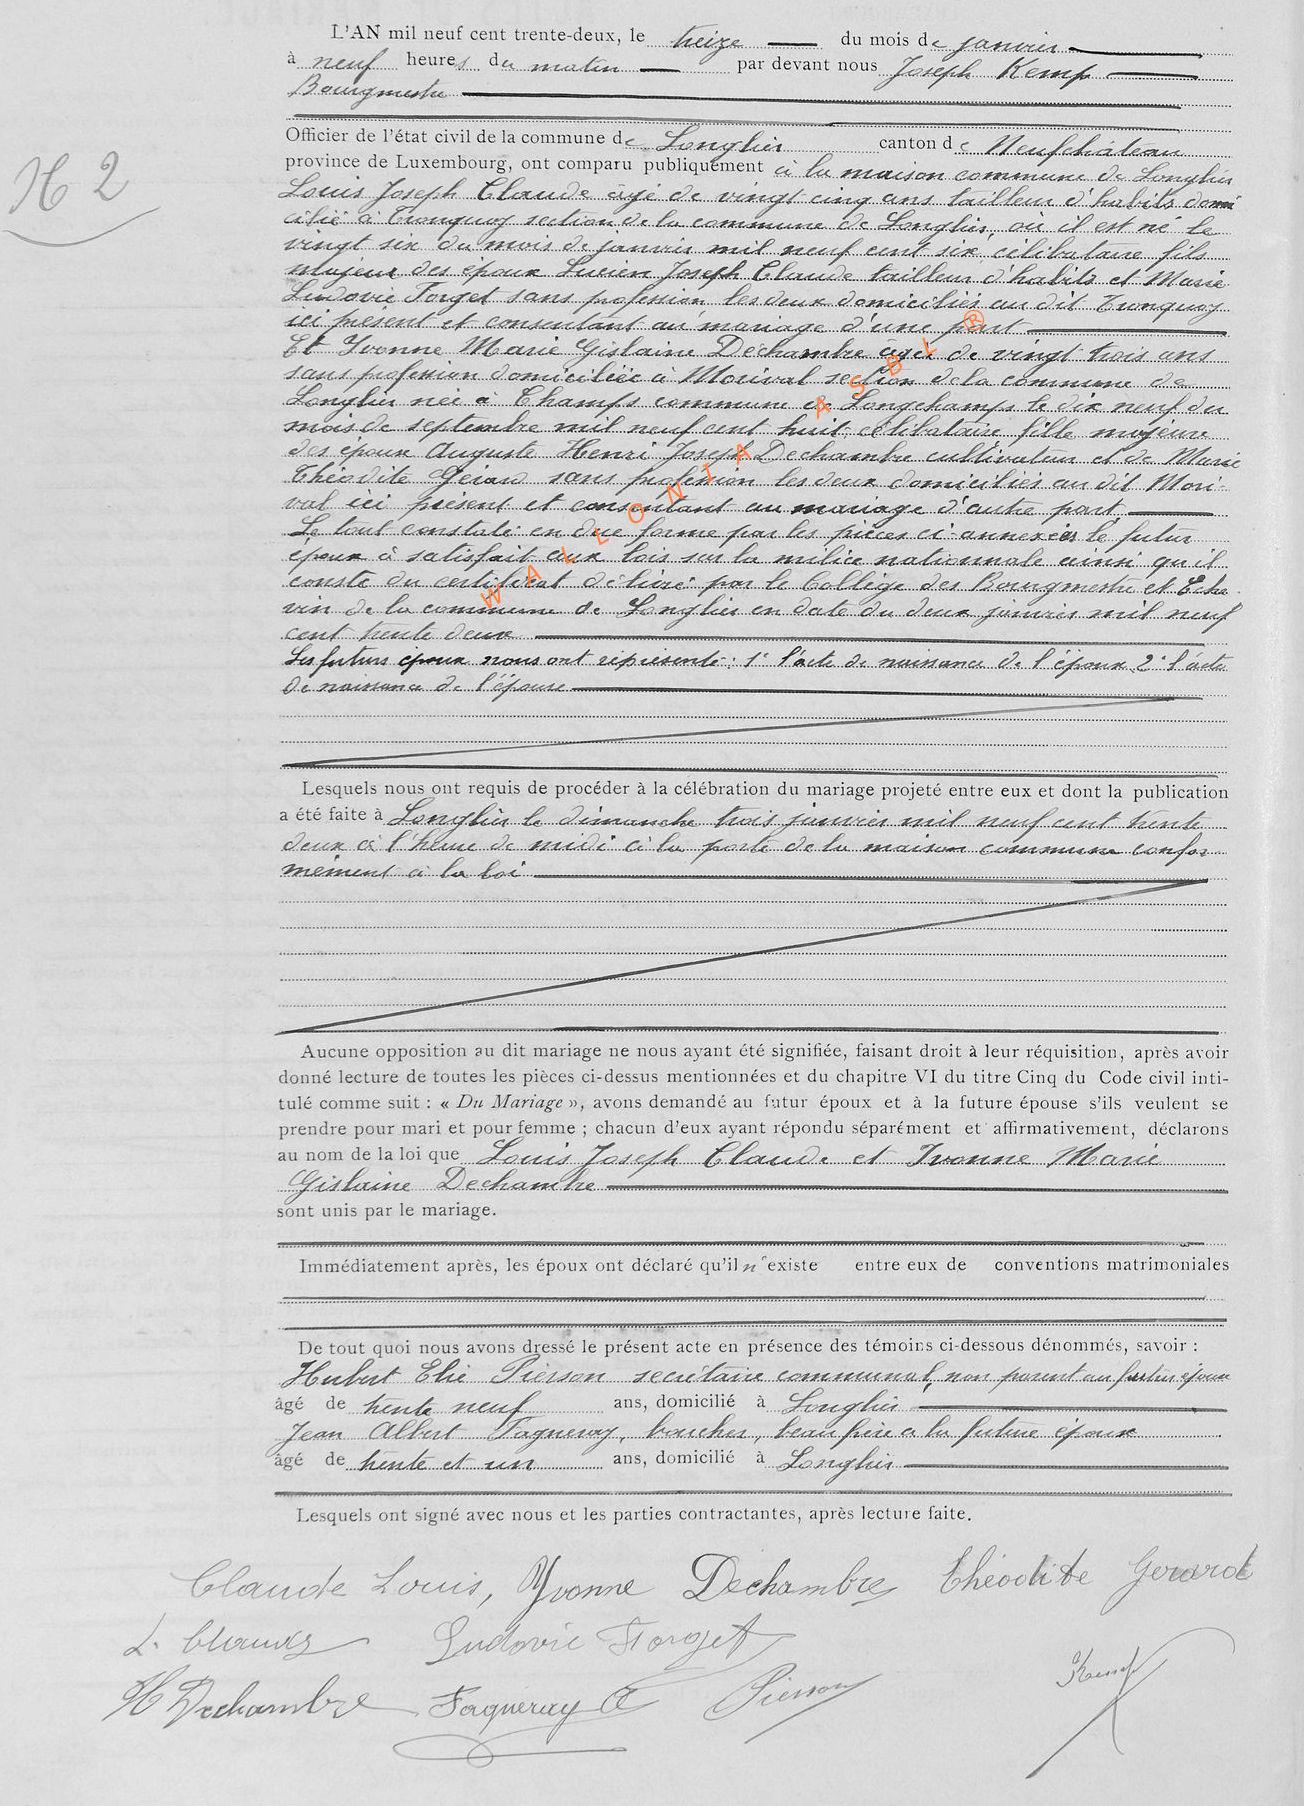 L'AN mil neuf cent trente-deux, le treize du mois de janvier
à neuf heures du matin par devant nous Joseph Kemp
Bourgmestre
Officier de l'état civil de la commune de Longlier canton de Neufchâteau
N 2
province de Luxembourg, ont comparu publiquement à la maison commune de Longlier
Louis Joseph Claude âgé de vingt cinq ans tailleur d'habits domi
cilié à Tronquoy section de la commune de Longlier, où il est né le
vingt six du mois de janvier mil neuf cent six, célibataire fils
majeur des époux Lucien Joseph Claude tailleur d'habits et Marie
Ludovie Forget sans profession les deux domiciliés au dit Tronquoy
ici présent et consentant au mariage d'une part
Et Yvonne Marie Gislaine Dechambre âgée de vingt trois ans
sans profession domiciliée à Morival section de la commune de
Longlier née à Champs commune de Longchamps le dix neuf du
mois de septembre mil neuf cent huit, célibataire fille majeure
des époux Auguste Henri Joseph Dechambre cultivateur et de Marie
Théodite Gérard sans profession les deux domiciliés au dit Mori-
val ici présent et consentant au mariage d'autre part,
Le tout constaté en due forme par les pièces ci-annexées le futur
époux à satisfait aux lois sur la milice nationale ainsi qu'il
conste du certificat délivré par le Collège des Bourgmestre et Eche
vin de la commune de Longlier en date du deux janvier mil neuf
cent trente deux
Les futurs époux nous ont représenté: 1° l'acte de naissance de l'époux 2° l'acte
de naissance de l'épouse
Lesquels nous ont requis de procéder à la célébration du mariage projeté entre eux et dont la publication
a été faite à Longlier le dimanche trois janvier mil neuf cent trente
deux à l'heure de midi à la porte de la maison commune confor
mément à la loi
Aucune opposition au dit mariage ne nous ayant été signifiée, faisant droit à leur réquisition, après avoir
donné lecture de toutes les pièces ci-dessus mentionnées et du chapitre VI du titre Cinq du Code civil inti-
tulé comme suit : « Du Mariage », avons demandé au futur époux et à la future épouse s'ils veulent se
prendre pour mari et pour femme ; chacun d'eux ayant répondu séparément et affirmativement, déclarons
au nom de la loi que Louis Joseph Claude et Yvonne Marie
Gislaine Dechambre
sont unis par le mariage.
Immédiatement après, les époux ont déclaré qu'il n'existe entre eux de conventions matrimoniales
De tout quoi nous avons dressé le présent acte en présence des témoins ci-dessous dénommés, savoir :
Hubert Elie Pierson secrétaire communal, non parent au futur époux
âgé de trente neuf ans, domicilié à Longlier
Jean Albert Fagneray, boucher, beau frère à la future épouse
âgé de trente et un ans, domicilié à Longlier
Lesquels ont signé avec nous et les parties contractantes, après lecture faite.
Claude Louis, Yvonne Dechambre Théodite Gerard
L. Claude Ludovie Forget Kemp
H Dechambre Fagneray A Pierson
WALLONIA ASBL ®